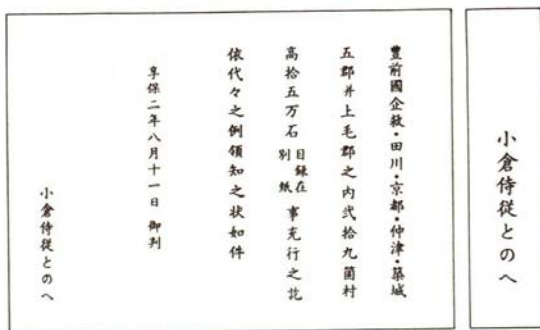 小倉侍従とのへ
豊前國企救・田川・京都・仲津・築城
五郡并上毛郡之内弐拾九箇村
高拾五万石 目録在別紙 事充行之訖
依代々之例領知之状如件
享保二年八月十一日 御判
小倉侍従とのへ